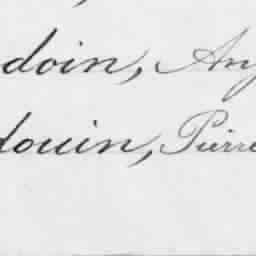 doin, An
douin, Pierre